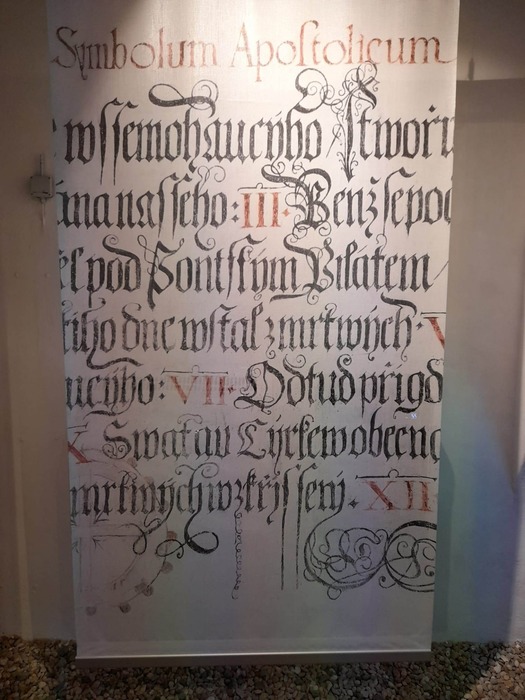 Symbolum Apoſtolicum
wſſemohaucýho Stwoři
mananaſſeho: III. Kenž ſe poč
ěl pod Pontſkým Pilatem
tiho dne wſtal z mrtwých. V
ucýho: VII. Odtud přigd
X Swatau Cýrkew obecnų
mrtwých wzkřýſſenj. XII